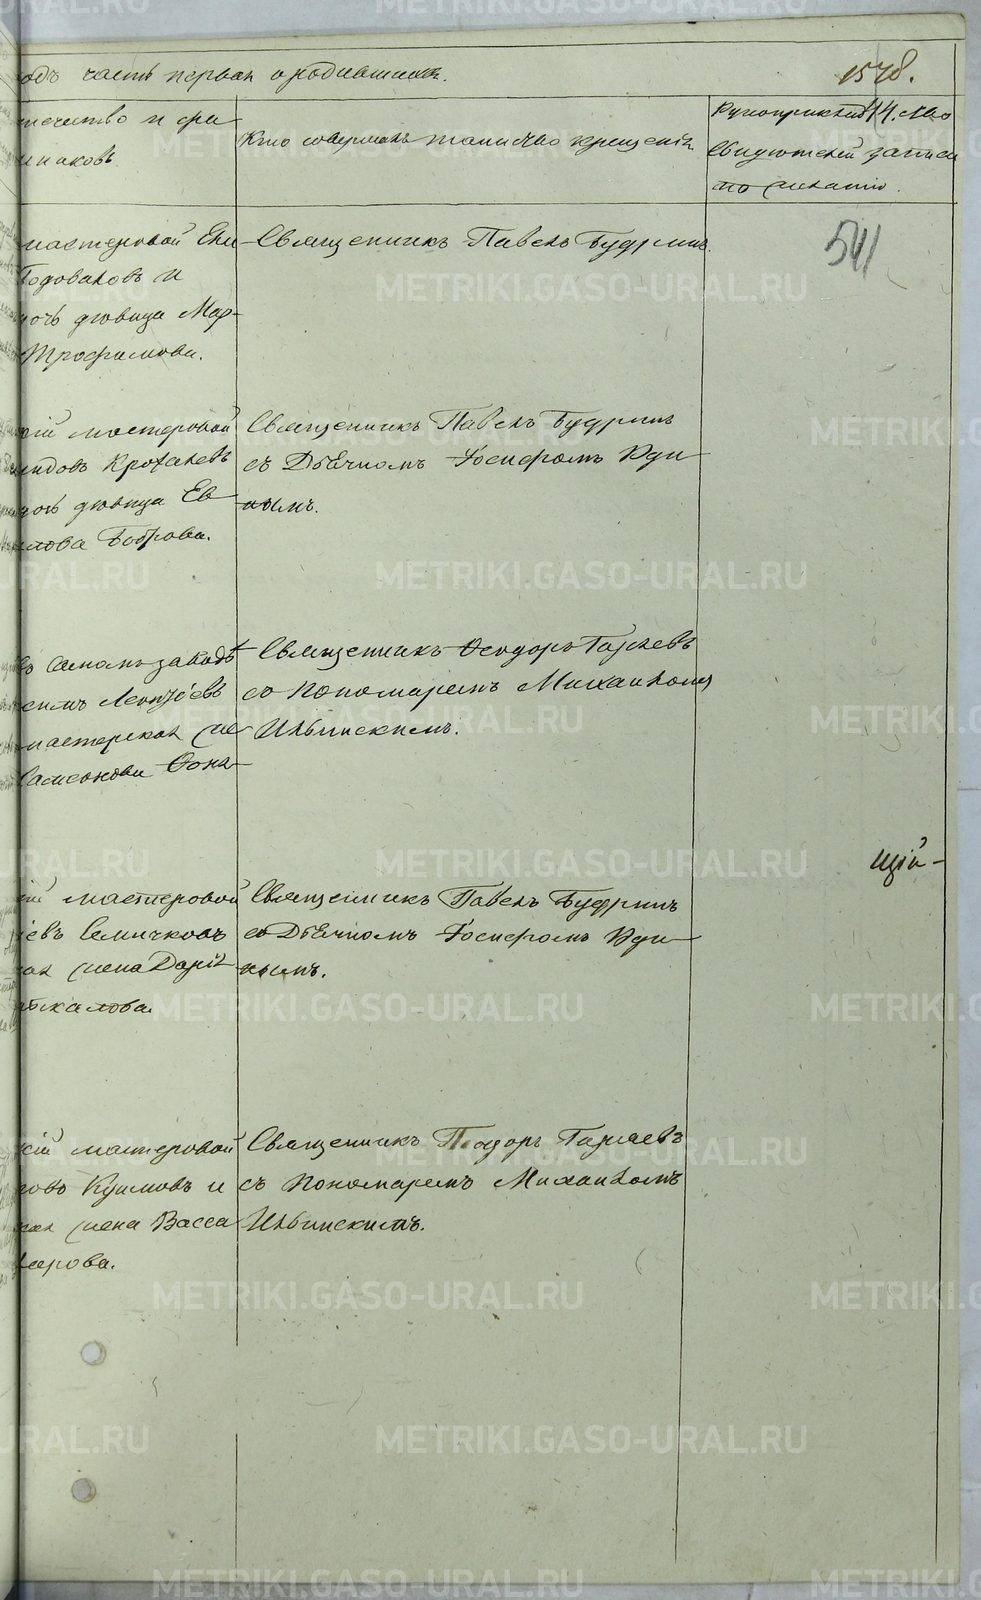 одъ часть первая о родившихся.
1578.
течество и фа
милковъ
Кто совершалъ таинство крещенія.
Рукоприкладство
свидѣтелей записи
по желанію.
541
мастеровой
Годоваловъ и
дѣвица Мар-
Трофимова.
Священникъ Павелъ Будринъ.
кій мастеровой
дѣвица Ев-
лова Боброва.
Священникъ Павелъ Будринъ
съ Дьячкомъ Іосифомъ Юди-
нымъ.
въ самомъ заводѣ
Леонтьевъ
мастерская же-
Самсонова Ѳона-
Священникъ Ѳеодоръ Гаряевъ
со Пономаремъ Михаиломъ
Ильинскимъ.
щій-
кій мастеровой
евъ Семичковъ
жена Дарія
калова.
Священникъ Павелъ Будринъ
съ Дьячкомъ Іосифомъ Юди-
нымъ.
кій мастеровой
Куимовъ и
жена Васса
карова.
Священникъ Ѳеодоръ Гаряевъ
съ Пономаремъ Михаиломъ
Ильинскимъ.
METRIKI.GASO-URAL.RU